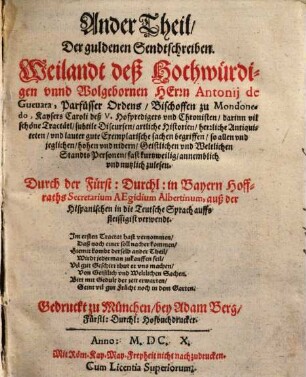 Ander Theil/
Der guldenen Sendtschreiben.
Weilandt deß Hochwürdi-
gen vnnd Wolgebornen Herrn Antonij de
Gueuara, Parfüsser Ordens/ Bischoffen zu Mondone-
do, Kaysers Caroli deß V. Hofpredigers vnd Chronisten/ darinn vil
schöne Tractätl/ subteile Discursen/ artliche Historien/ herzliche Antiqui-
teten/ vnd lauter gute Exemplarische sachen begriffen/ so allen vnd
jeglichen/ hohen vnd nidern/ Geistlichen vnd Weltlichen
Standts Personen/ fast kurtzweilig/ annemblich
vnd nutzlich zulesen.
Durch der Fürst: Durchl: in Bayern Hoff-
raths Secretarium AEgidium Albertinum, auß der
Hispanischen in die Teutsche Sprach auffs
fleissigist verwendt.
Im ersten Tractat hast vernommen/
Daß noch einer soll nacher kommen/
Hiemit kombt derselb ander Theil/
Würdt jederman zukauffen feil/
Von Geistlich vnd Weltlichen Sachen,
Gedruckt zu München/ bey Adam Berg/
Fürstl: Durchl: Hofbuchdrucker.
Anno: M. DC. X.
Mit Röm: Kay: May: Freyheit nicht nachzudrucken.
Cum Licentia Superiorum.